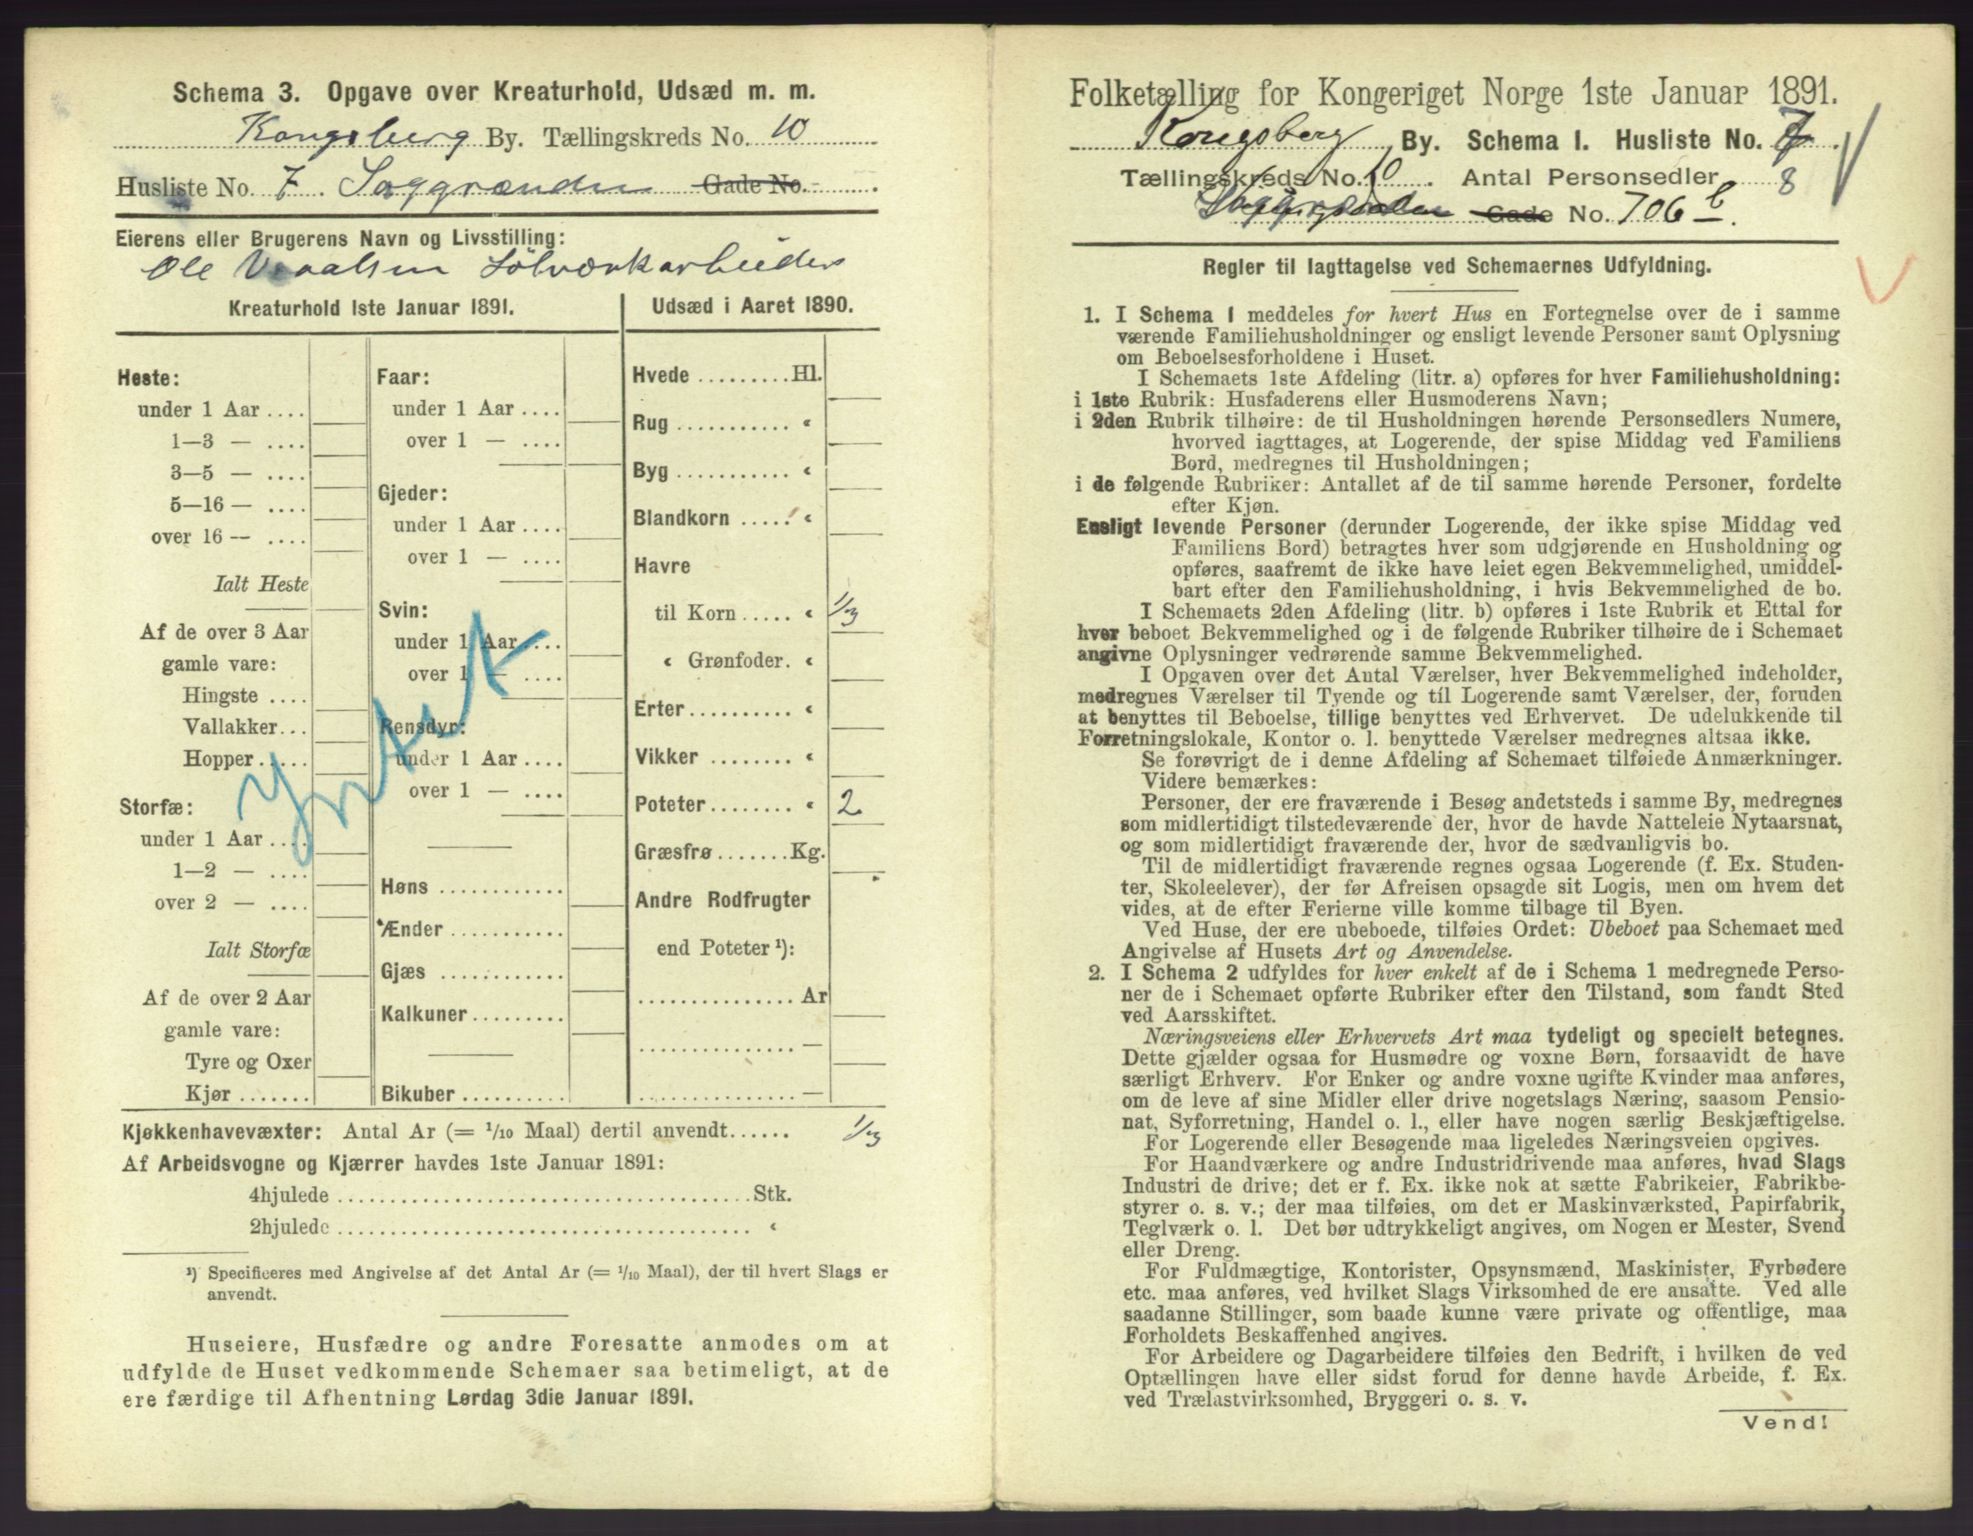 Schema 3. Opgave over Kreaturhold, Udsæd m. m.
Kongsberg By. Tællingskreds No. 10
Husliste No. 7. Saggrænden Gade No.
Eierens eller Brugerens Navn og Livsstilling:
Ole Sølværkarbeider
Kreaturhold 1ste Januar 1891.
Heste:
under 1 Aar ....
1—3 — ....
3—5 — ....
5—16 — ....
over 16 — ....
Ialt Heste
Af de over 3 Aar
gamle vare:
Hingste ....
Vallakker...
Hopper.....
Storfæ:
under 1 Aar ....
1—2 — ....
over 2 — ....
Ialt Storfæ
Af de over 2 Aar
gamle vare:
Tyre og Oxer
Kjør .......
Faar:
under 1 Aar ....
over 1 — ....
Gjeder:
under 1 Aar ....
over 1 — ....
Svin:
under 1 Aar ....
over 1 — ....
Rensdyr:
under 1 Aar ....
over 1 — ....
Høns ............
Ænder ...........
Gjæs ............
Kalkuner.........
Bikuber ..........
Udsæd i Aaret 1890.
Hvede .........Hl.
Rug ........... «
Byg ........... «
Blandkorn ..... «
Havre
til Korn ..... « 1/3
« Grønfoder. «
Erter.......... «
Vikker ........ «
Poteter........ « 2
Græsfrø.......Kg.
Andre Rodfrugter
end Poteter ¹):
............... Ar
............... —
............... —
Kjøkkenhavevæxter: Antal Ar (= 1/10 Maal) dertil anvendt...... 1/3
Af Arbeidsvogne og Kjærrer havdes 1ste Januar 1891:
4hjulede ........................................Stk.
2hjulede ........................................ «
¹) Specificeres med Angivelse af det Antal Ar (= 1/10 Maal), der til hvert Slags er
anvendt.
Huseiere, Husfædre og andre Foresatte anmodes om at
udfylde de Huset vedkommende Schemaer saa betimeligt, at de
ere færdige til Afhentning Lørdag 3die Januar 1891.
Folketælling for Kongeriget Norge 1ste Januar 1891.
Kongsberg By. Schema I. Husliste No. 7.
Tællingskreds No. 10. Antal Personsedler 8
Gade No. 706 b.
Regler til Iagttagelse ved Schemaernes Udfyldning.
1. I Schema I meddeles for hvert Hus en Fortegnelse over de i samme
værende Familiehusholdninger og ensligt levende Personer samt Oplysning
om Beboelsesforholdene i Huset.
I Schemaets 1ste Afdeling (litr. a) opføres for hver Familiehusholdning:
i 1ste Rubrik: Husfaderens eller Husmoderens Navn;
i 2den Rubrik tilhøire: de til Husholdningen hørende Personsedlers Numere,
hvorved iagttages, at Logerende, der spise Middag ved Familiens
Bord, medregnes til Husholdningen;
i de følgende Rubriker: Antallet af de til samme hørende Personer, fordelte
efter Kjøn.
Ensligt levende Personer (derunder Logerende, der ikke spise Middag ved
Familiens Bord) betragtes hver som udgjørende en Husholdning og
opføres, saafremt de ikke have leiet egen Bekvemmelighed, umiddel-
bart efter den Familiehusholdning, i hvis Bekvemmelighed de bo.
I Schemaets 2den Afdeling (litr. b) opføres i 1ste Rubrik et Ettal for
hver beboet Bekvemmelighed og i de følgende Rubriker tilhøire de i Schemaet
angivne Oplysninger vedrørende samme Bekvemmelighed.
I Opgaven over det Antal Værelser, hver Bekvemmelighed indeholder,
medregnes Værelser til Tyende og til Logerende samt Værelser, der, foruden
at benyttes til Beboelse, tillige benyttes ved Erhvervet. De udelukkende til
Forretningslokale, Kontor o. l. benyttede Værelser medregnes altsaa ikke.
Se forøvrigt de i denne Afdeling af Schemaet tilføiede Anmærkninger.
Videre bemærkes:
Personer, der ere fraværende i Besøg andetsteds i samme By, medregnes
som midlertidigt tilstedeværende der, hvor de havde Natteleie Nytaarsnat,
og som midlertidigt fraværende der, hvor de sædvanligvis bo.
Til de midlertidigt fraværende regnes ogsaa Logerende (f. Ex. Studen-
ter, Skoleelever), der før Afreisen opsagde sit Logis, men om hvem det
vides, at de efter Ferierne ville komme tilbage til Byen.
Ved Huse, der ere ubeboede, tilføies Ordet: Ubeboet paa Schemaet med
Angivelse af Husets Art og Anvendelse.
2. I Schema 2 udfyldes for hver enkelt af de i Schema 1 medregnede Perso-
ner de i Schemaet opførte Rubriker efter den Tilstand, som fandt Sted
ved Aarsskiftet.
Næringsveiens eller Erhvervets Art maa tydeligt og specielt betegnes.
Dette gjælder ogsaa for Husmødre og voxne Børn, forsaavidt de have
særligt Erhverv. For Enker og andre voxne ugifte Kvinder maa anføres,
om de leve af sine Midler eller drive nogetslags Næring, saasom Pensio-
nat, Syforretning, Handel o. l., eller have nogen særlig Beskjæftigelse.
For Logerende eller Besøgende maa ligeledes Næringsveien opgives.
For Haandværkere og andre Industridrivende maa anføres, hvad Slags
Industri de drive; det er f. Ex. ikke nok at sætte Fabrikeier, Fabrikbe-
styrer o. s. v.; der maa tilføies, om det er Maskinværksted, Papirfabrik,
Teglværk o. l. Det bør udtrykkeligt angives, om Nogen er Mester, Svend
eller Dreng.
For Fuldmægtige, Kontorister, Opsynsmænd, Maskinister, Fyrbødere
etc. maa anføres, ved hvilket Slags Virksomhed de ere ansatte. Ved alle
saadanne Stillinger, som baade kunne være private og offentlige, maa
Forholdets Beskaffenhed angives.
For Arbeidere og Dagarbeidere tilføies den Bedrift, i hvilken de ved
Optællingen have eller sidst forud for denne havde Arbeide, f. Ex.
ved Trælastvirksomhed, Bryggeri o. s. v.
Vend!